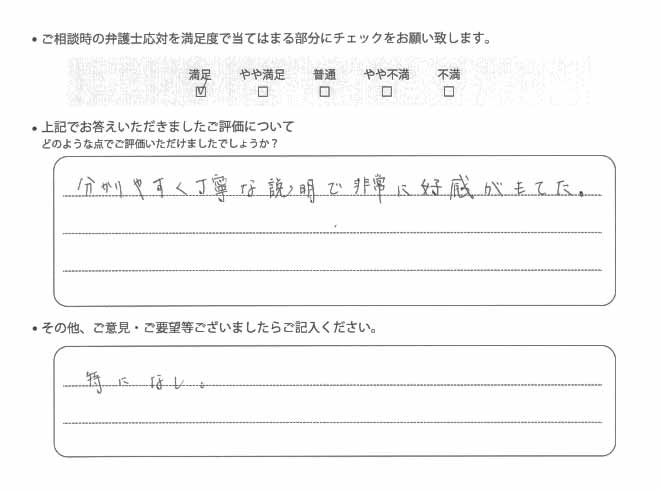 • ご相談時の弁護士応対を満足度で当てはまる部分にチェックをお願い致します。
満足 やや満足 普通 やや不満 不満
☑ ☐ ☐ ☐ ☐
• 上記でお答えいただきましたご評価について
どのような点でご評価いただけましたでしょうか？
分かりやすく丁寧な説明で非常に好感がもてた。
• その他、ご意見・ご要望等ございましたらご記入ください。
特になし。